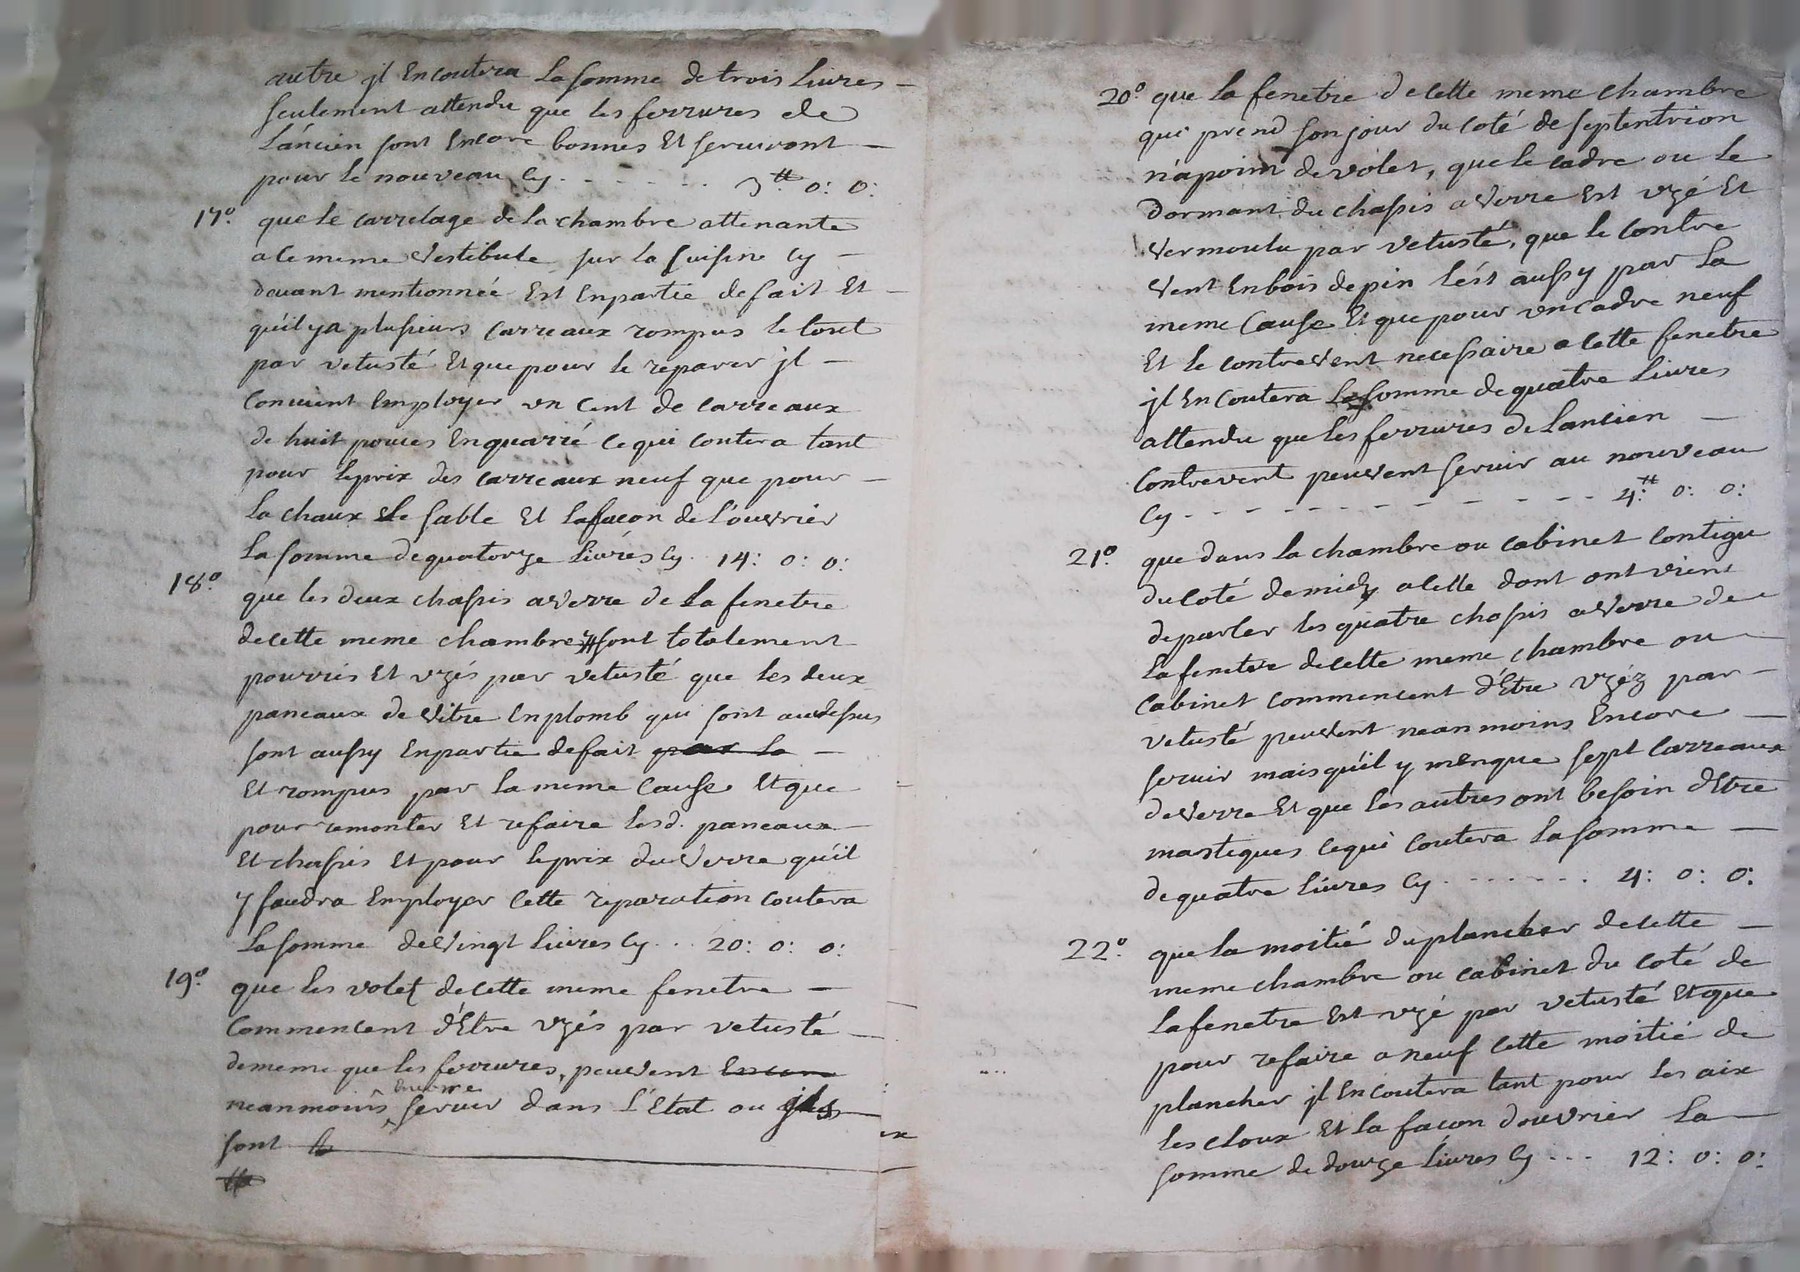 autre jl En coutera la somme de trois livres –
seulement attendu que les ferrures de
L'ancien sont Encore bonnes Et serviront –
pour le nouveau Cy . - - - - . . 3tt: 0: 0:
17º. que le carrelage de la chambre attenante
a le meme vestibule sur la cuisine Cy –
davant mentionnée Est En partie defait Et –
qu'il y a plusieurs carreaux rompus le tout
par vetusté Et que pour le reparer jl –
Convient Employer vn Cent de carreaux
de huit pouces En quarré ce qui coutera tant
pour le prix des carreaux neuf que pour –
La chaux le sable Et la facon de L'ouvrier
La somme de quatorze livres Cy . 14: 0: 0:
18º. que les deux chassis a verre de La fenetre
de cette meme chambre sont totalement
pourris Et vzés par vetusté que les deux
paneaux de vitre En plomb qui sont au dessus
sont aussy En partie defait par la –
Et rompus par la meme Cause Et que
pour remonter Et refaire lesd. paneaux –
Et chassis Et pour le prix du verre qu'il
y faudra Employer Cette reparation coutera
La somme de vingt livres Cy . . . 20: 0: 0:
19º. que les volet de cette meme fenetre –
Commencent d'Etre vzés par vetusté
de meme que les ferrures, peuvent Encore
neanmoins Encore servir dans l'Etat ou jls
sont
20º. que la fenetre de cette meme chambre
qui prend son jour du coté de septentrion
n'a point de volet, que le cadre ou le
dormant du chassis a verre Est vzé Et
vermoulu par vetusté, que le contre
vent En bois de pin l'est aussy par la
meme Cause Et que pour vn cadre neuf
Et le contrevent necessaire a cette fenetre
jl En coutera La somme de quatre livres
attendu que les ferrures de Lancien –
Contrevent peuvent servir au nouveau
Cy - - - - - - - - - - - - 4tt: 0: 0:
21º. que dans la chambre ou cabinet contigu
du coté de midy a celle dont ont vient
de parler les quatre chassis a verre de
La fenetre de cette meme chambre ou –
Cabinet commencent d'Etre vzéz par –
vetusté peuvent neanmoins Encore –
servir mais qu'il y menque sept carreaux
de verre Et que les autres ont besoin d'Etre
mastiques ce qui coutera la somme –
de quatre livres Cy . - - - - - . 4: 0: 0:
22º. que la moitié du plancher de cette –
meme chambre ou cabinet du coté de
la fenetre Est vzé par vetusté Et que
pour refaire a neuf cette moitié de
plancher jl En coutera tant pour les aix
les cloux Et la facon d'ouvrier La –
somme de douze livres Cy - - - 12: 0: 0: